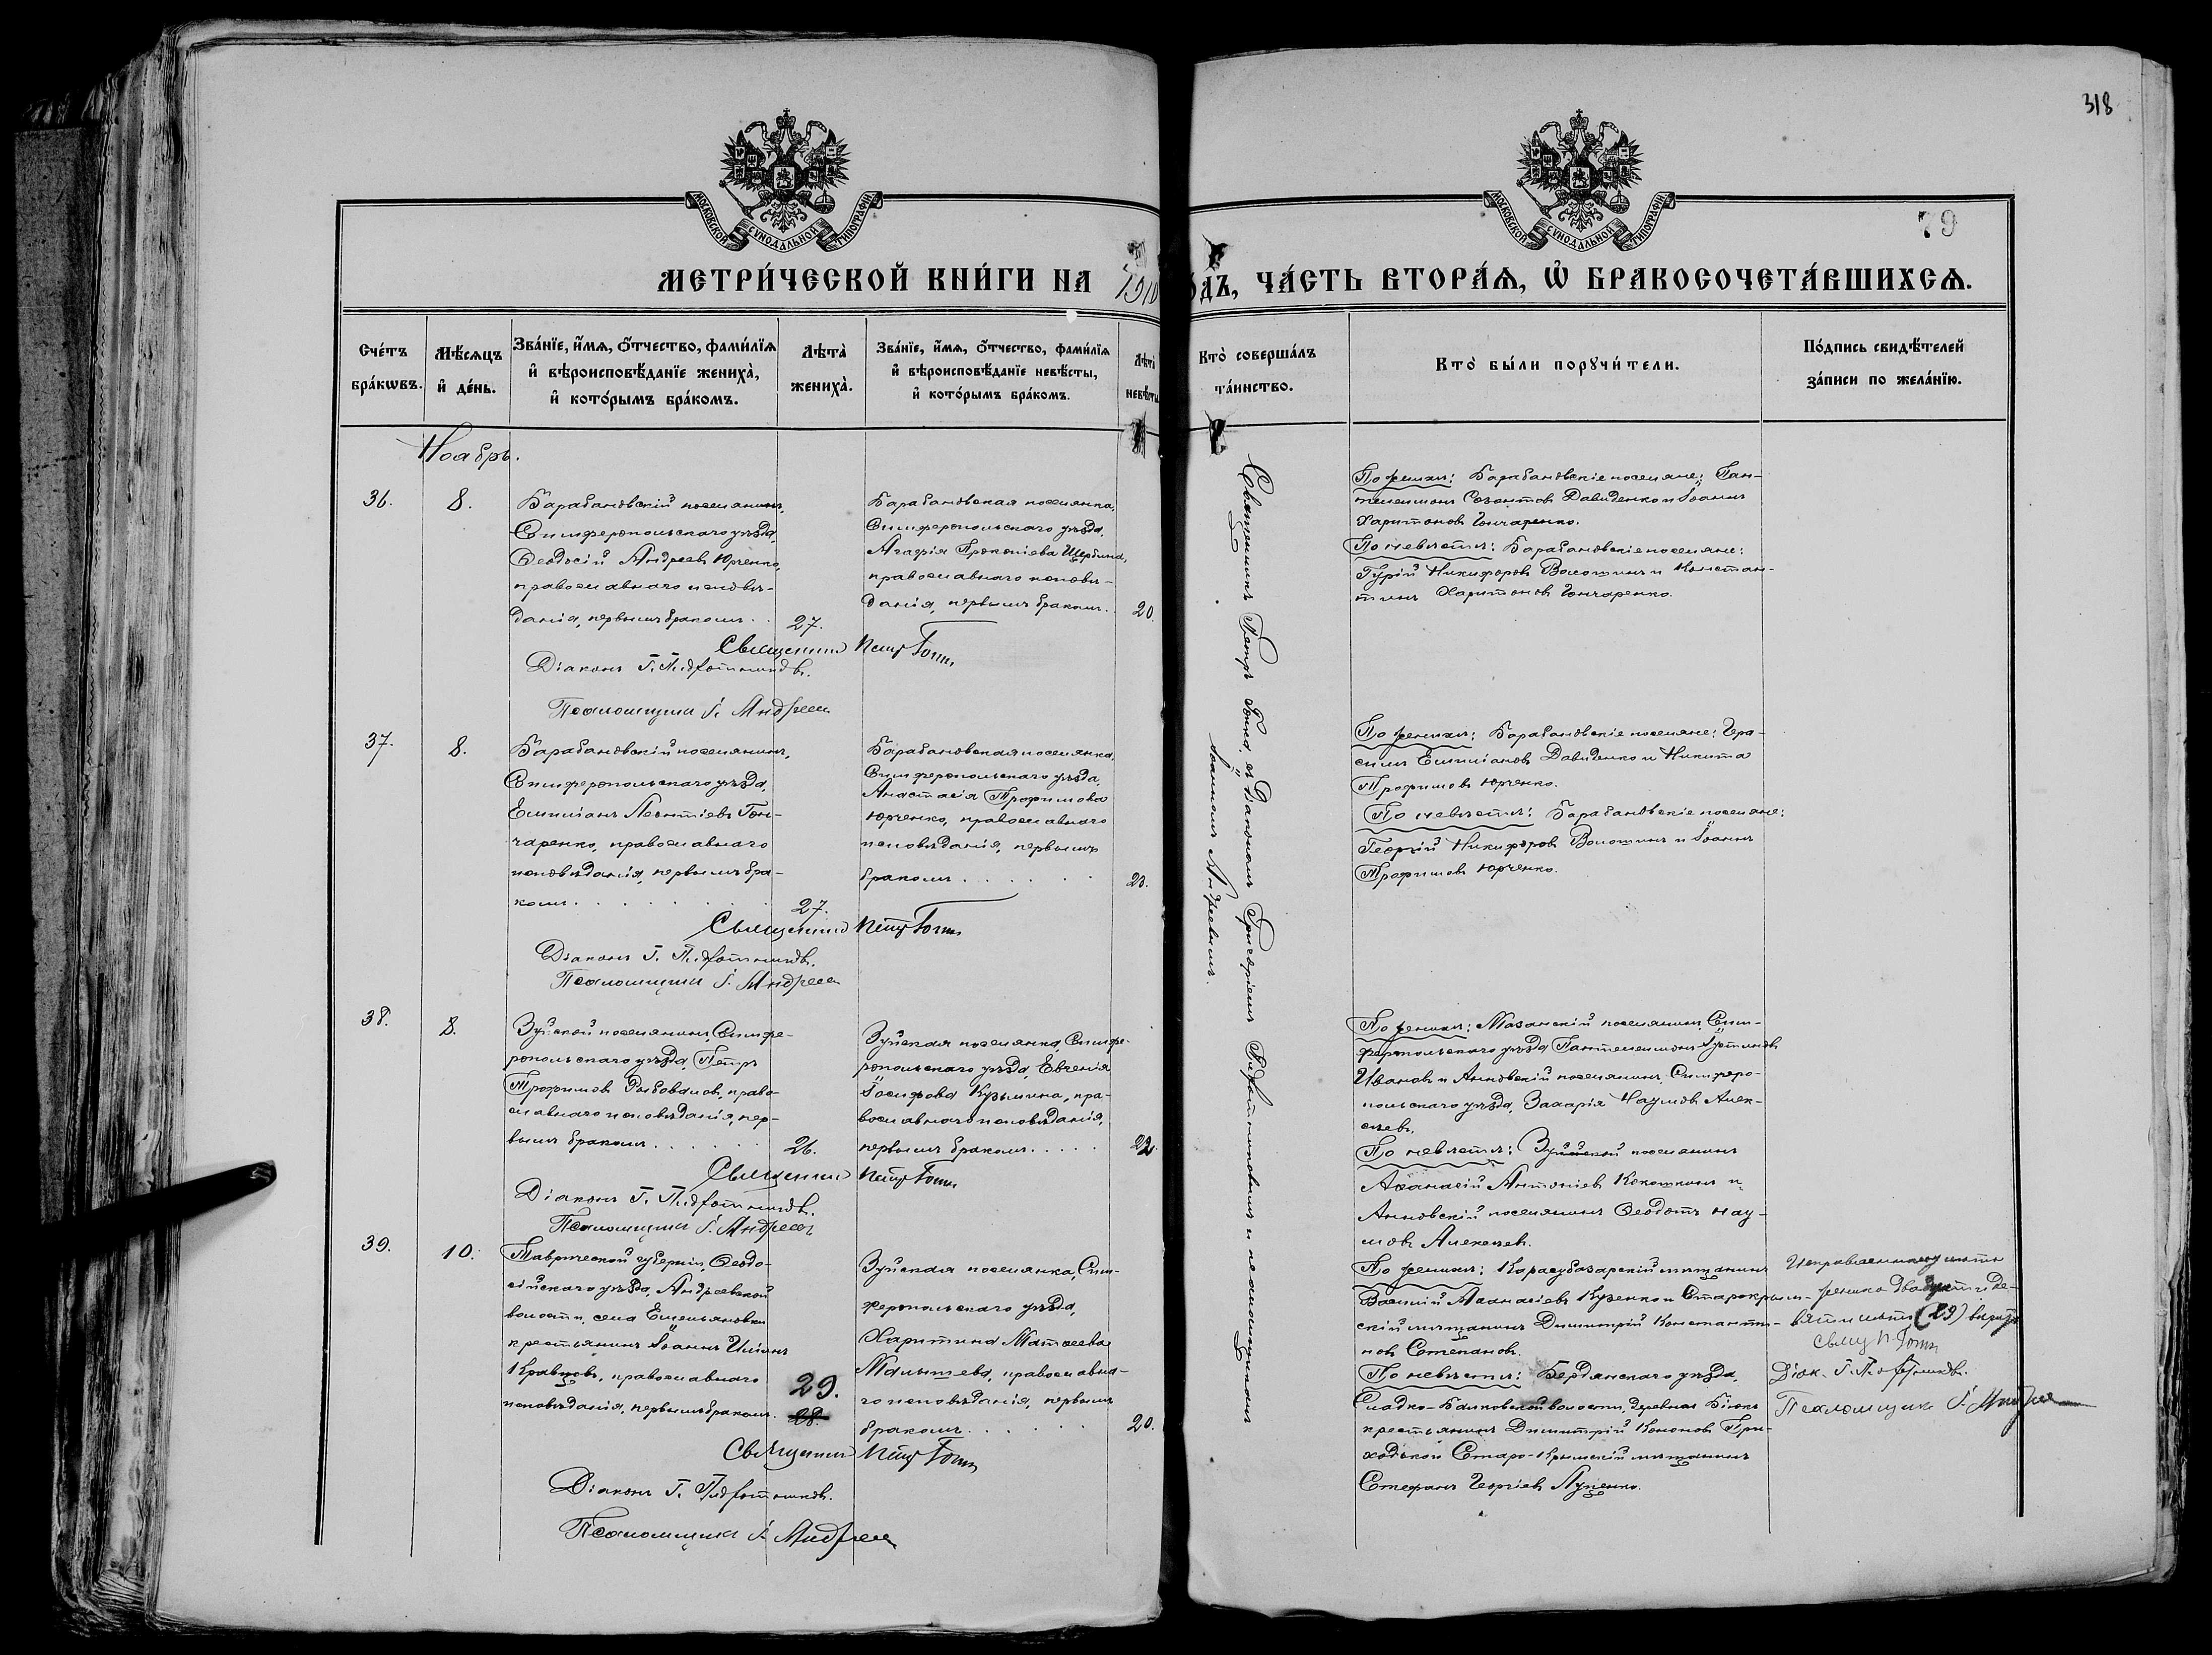 318
МОСКОВСКОЙ СѴНОДАЛЬНОЙ ТИПОГРАФІИ
МОСКОВСКОЙ СѴНОДАЛЬНОЙ ТИПОГРАФІИ
79
МЕТРИ́ЧЕСКОЙ КНИ́ГИ НА 1910
О́ДЪ, ЧА́СТЬ ВТОРА́Ѧ, Ѡ҆ БРАКОСОЧЕТА́ВШИХСѦ.
Счéтъ
брáкѡвъ.
Мѣ́сѧцъ
и҆ дéнь.
Звáнїе, и҆́мѧ, ѻ҆́тчество, фамѝлїѧ
и҆ вѣроисповѣ́данїе женихà,
и҆ котóрымъ брáкомъ.
Лѣтà
женихà.
Звáнїе, и҆́мѧ, ѻ҆́тчество, фамѝлїѧ
и҆ вѣроисповѣ́данїе невѣ́сты,
и҆ котóрымъ брáкомъ.
Лѣтà
невѣ́сты
Ктò совершáлъ
тáинство.
Ктò бы́ли порꙋчи́тели.
Пóдпись свидѣ́телей
зáписи по желáнїю.
Ноябрь.
36.
8.
Барабановскій поселянинъ,
Симферопольскаго уѣзда,
Ѳеодосій Андреевъ Юрченко,
православнаго исповѣ-
данія, первымъ бракомъ . .
27.
Барабановская поселянка,
Симферопольскаго уѣзда,
Агафія Прокопіева Щербина,
православнаго исповѣ-
данія, первымъ бракомъ .
20.
Священникъ Петръ Гонка, съ Діакономъ Григоріемъ и псаломщикомъ
Іоанномъ Андреевымъ.
По женихѣ: Барабановскіе поселяне: Пан-
телеимонъ Созонтовъ Давиденко и Іоаннъ
Харитоновъ Гончаренко.
По невѣстѣ: Барабановскіе поселяне:
Гурій Никифоровъ Волошинъ и Констан-
тинъ Харитоновъ Гончаренко.
Священникъ Петръ
Діаконъ Г.
Псаломщикъ І. Андреев
37.
8.
Барабановскій поселянинъ,
Симферопольскаго уѣзда,
Емиліанъ Леонтіевъ Гон-
чаренко, православнаго
исповѣданія, первымъ бра-
комъ . . . . .
27.
Барабановская поселянка,
Симферопольскаго уѣзда,
Анастасія Трофимова
Юрченко, православнаго
исповѣданія, первымъ
бракомъ . . . . .
23.
По женихѣ: Барабановскіе поселяне: Гера-
симъ Емиліановъ Давиденко и Никита
Трофимовъ Юрченко.
По невѣстѣ: Барабановскіе поселяне:
Георгій Никифоровъ Волошинъ и Іоаннъ
Трофимовъ Юрченко.
Священникъ Петръ
Діаконъ Г.
Псаломщикъ І. Андреев
38.
8.
Зуйской поселянинъ, Симфе-
ропольскаго уѣзда, Петръ
Трофимовъ Рыбоваловъ, право-
славнаго исповѣданія, пер-
вымъ бракомъ . . . .
26.
Зуйская поселянка, Симфе-
ропольскаго уѣзда, Евгенія
Іосифова Кузьмина, пра-
вославнаго исповѣданія,
первымъ бракомъ . . . .
22.
По женихѣ: Мазанскій поселянинъ, Сим-
феропольскаго уѣзда Пантелеимонъ Іустиновъ
Ивановъ и Анновскій поселянинъ, Симферо-
польскаго уѣзда, Захарія Наумовъ Алек-
сѣевъ.
По невѣстѣ: Зуйской поселянинъ
Аѳанасій Антоніевъ Кокоткинъ и
Анновскій поселянинъ Ѳеодотъ Нау-
мовъ Алексѣевъ.
Священникъ Петръ
Діаконъ Г.
Псаломщикъ І. Андреев
39.
10.
Таврической губерніи, Ѳеодо-
сійскаго уѣзда, Андреевской
волости, села Емельяновки
крестьянинъ Іоаннъ Иліинъ
Кравцовъ, православнаго
исповѣданія, первымъ бракомъ.
29.
28.
Зуйская поселянка, Сим-
феропольскаго уѣзда,
Харитина Матѳеева
Малышева, православна-
го исповѣданія, первымъ
бракомъ . . . . .
20.
По женихѣ: Карасубазарскій мѣщанинъ
Василій Аѳанасіевъ Куценко и Старокрым-
скій мѣщанинъ Димитрій Константи-
новъ Степановъ.
По невѣстѣ: Бердянскаго уѣзда,
Сладко-Балковской волости, деревни
крестьянинъ Димитрій Кононовъ При-
ходькой Старо-Крымскій мѣщанинъ
Стефанъ Георгіевъ Луценко.
Исправленному лѣта
жениха двадцати де-
вяти лѣтъ (29) вѣрить
Свящ. П.
Діак. Г.
Псаломщикъ І. Андреев
Священникъ Петръ
Діаконъ Г.
Псаломщикъ І. Андреев